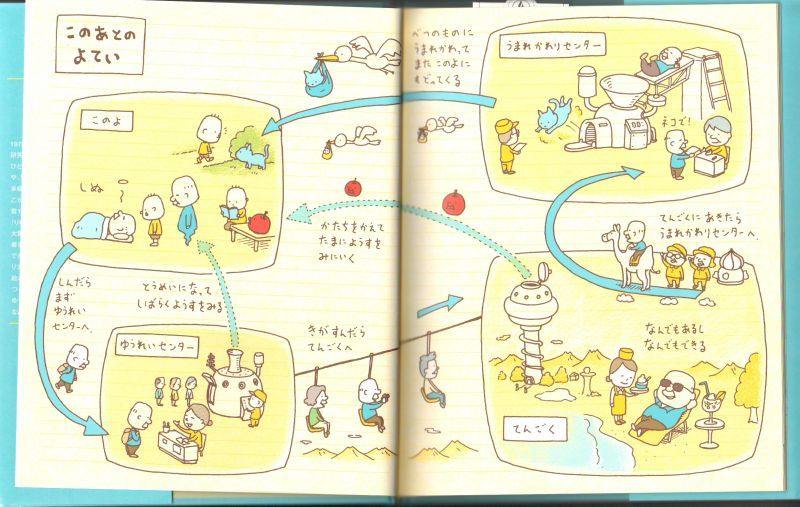 このあとの
よてい
このよ
しぬ
しんだら
まず
ゆうれい
センターへ。
ゆうれいセンター
とうめいになって
しばらくようすをみる
きがすんだら
てんごくへ
かたちをかえて
たまにようすを
みにいく
てんごく
なんでもあるし
なんでもできる
てんごくにあきたら
うまれかわりセンターへ。
うまれかわりセンター
ネコで!
べつのものに
うまれかわって
また このよに
もどってくる